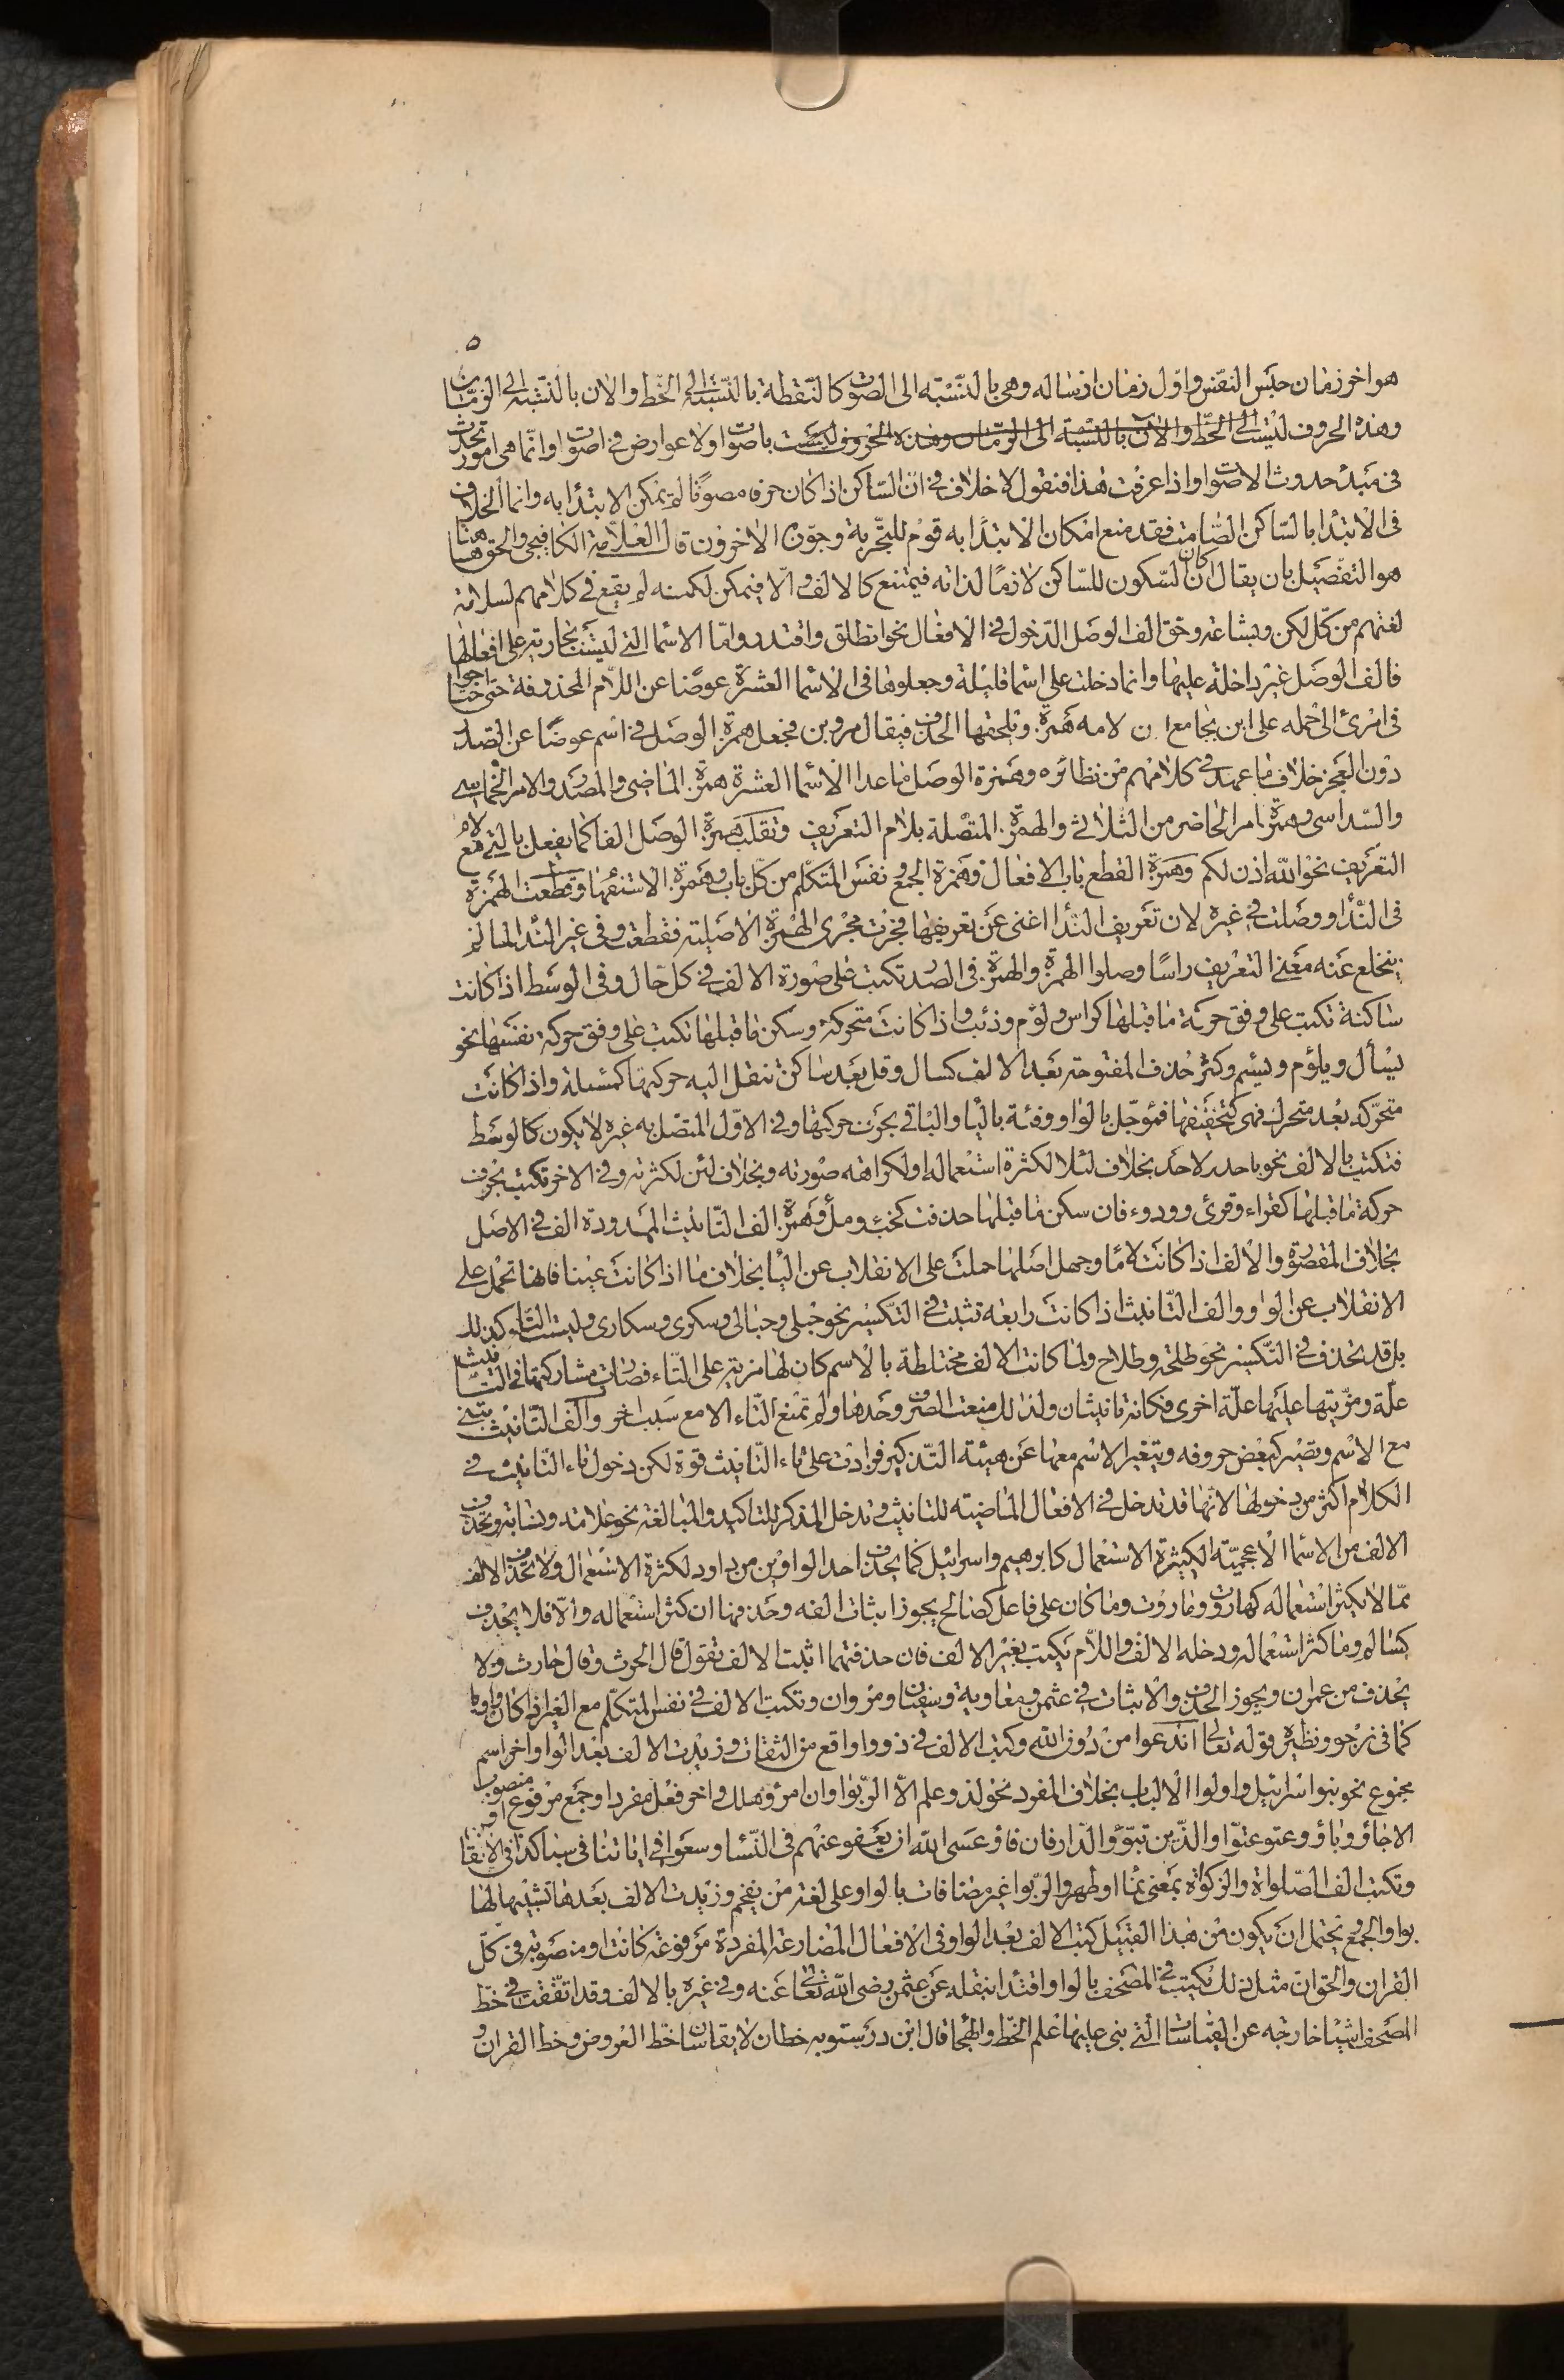 ٥
هو اخر زمان حبس النفس واول زمان ارساله وهى بالنسبة الى الصوت كالنقطة بالنسبة الى الخط والان بالنسبة الى الزمان
وهذه الحروف ليست الى الخط والان بالنسبة الى الزمان وهذه الحروف ليست باصوات ولا عوارض فى اصوات وانما هى امور تحدث
فى مبدء حدوث الاصوات واذا عرفت هذا فنقول لا خلاف فى ان الساكن اذا كان حرفا مصوتا لم يمكن الابتدأ به وانما الخلاف
فى الابتدأ بالساكن الصامت فقد منع امكان الابتدأ به قوم للتجربة وجوزه الاخرون قال العلامة الكافيجى والحق هنا
هو التفصيل بان يقال ان كان السكون للساكن لازما لذاته فيمتنع كالالف والا فيمكن لكنه لم يقع فى كلامهم لسلامة
لغتهم من كل لكن وبشاعة وحق الف الوصل الدخول فى الافعال نحو انطلق واقتدر واما الاسما التى ليست بجارية على افعالها
فالف الوصل غير داخلة عليها وانما دخلت على اسما قليلة وجعلوها فى الاسما العشرة عوضا عن اللام المحذوفة حتى احتاجوا
فى امرئ الى حمله على ابن بجامع ان لامه همزة وتلحقها الحذف فيقال مر وبن فجعل همزة الوصل فى اسم عوضا عن الصدر
دون العجز خلاف ما عهد فى كلامهم من نظائره وهمزة الوصل ما عدا الاسما العشرة همزة الماضى والمصدر والامر الخماسى
والسداسى وهمزة امر الحاضر من الثلاثى والهمزة المتصلة بلام التعريف وتقلب همزة الوصل الفا كما يفعل بالتى مع لام
التعريف نحو الله اذن لكم وهمزة القطع باب الافعال وهمزة الجمع ونفس المتكلم من كل باب وهمزة الاستفهام وقطعت الهمزة
فى الندأ ووصلت فى غيره لان تعريف الندأ اغنى عن تعريفها فجرت مجرى الهمزة الاصلية فقطعت وفى غير الندأ لما لم
ينخلع عنه معنى التعريف راسا وصلوا الهمزة والهمزة فى الصدر تكتب على صورة الالف فى كل حال وفى الوسط اذا كانت
ساكنة تكتب على وفق حركة ما قبلها كراس ولوم وذئب واذا كانت متحركة وسكن ما قبلها تكتب على وفق حركة نفسها نحو
يسأل ويلؤم ويسئم وكثر حذف المفتوحة بعد الالف كسال وقل بعد ساكن تنقل اليه حركتها كمسئلة واذا كانت
متحركة بعد متحرك فهى كتخفيفها فمؤجل بالواو وفئة باليا والباقى بحرف حركتها وفى الاول المتصل به غيره لا يكون كالوسط
فتكتب بالالف نحو باحد لاحد بخلاف لئلا لكثرة استعماله او لكراهة صورته وبخلاف لئن لكثرته وفى الاخر تكتب بحرف
حركة ما قبلها كقراء وقرئ وردوء فان سكن ما قبلها حذفت كخبء وملأ وهمزة الف التانيث الممدودة الف فى الاصل
بخلاف المقصورة والالف اذا كانت لاما وجهل اصلها حملت على الانقلاب عن اليأ بخلاف ما اذا كانت عينا فانها تحمل على
الانقلاب عن الواو والف التانيث اذا كانت رابعة تثبت فى التكسير نحو حبلى وحبالى وسكرى وسكارى وليست التا كذلك
بل قد تحذف فى التكسير نحو طلحة وطلاح ولما كانت الالف مختلطة بالاسم كان لها مزية على التاء فصارت مشاركتها فى التانيث
علة ومزيتها عليها علة اخرى فكانه تانيثان ولذلك منعت الصرف وحدها ولم تمنع التاء الا مع سبب اخر والف التانيث تبنى
مع الاسم وتصير كبعض حروفه ويتغير الاسم معها عن هيئة التذكير فزادت على تاء التانيث قوة لكن دخول تاء التانيث فى
الكلام اكثر من دخولها لانها قد تدخل فى الافعال الماضية للتانيث وتدخل المذكر للتاكيد والمبالغة نحو علامة ونسابة وتحذف
الالف من الاسما الاعجمية الكثيرة الاستعمال كابرهيم واسرائيل كما يحذف احد الواوين من داود لكثرة الاستعمال ولا تحذف الالف
مما لا يكثر استعماله كهاروت وماروت وما كان على فاعل كصالح يجوز اثبات الفه وحذفها ان كثر استعماله والا فلا يحذف
كسالم وما كثر استعماله ودخله الالف واللام يكتب بغير الالف فان حذفتهما اثبت الالف تقول قال الحرث وقال حارث ولا
يحذف من عمران ويجوز الحذف والاثبات فى عثمن ومعاوية وسفيان ومروان وتكتب الالف فى نفس المتكلم مع الغير اذا كان واويا
كما فى نرجو ونظيره قوله تعالى اندعوا من دون الله وكتب الالف فى ذووا واقع من الثقات وزيدت الالف بعد الواو اخر اسم
مجموع نحو بنوا اسرائيل واولوا الالباب بخلاف المفرد نحو لذو علم الا الربوا وان امرؤ هلك واخر فعل مفرد او جمع مرفوع او منصوب
الا جاؤ وباؤ وعتو عتوا والذين تبوؤ والدار فان فاؤ عسى الله ان يعفو عنهم فى النسأ وسعو فى اياتنا فى سبا كذا فى الاتقان
وتكتب الف الصلواة والزكواة بمعنى نما او طهر والربوا غير مضافات بالواو على لغة من يفخم وزيدت الالف بعدها تشبيها لها
بواو الجمع ويحتمل ان يكون من هذا القبيل كتب الالف بعد الواو فى الافعال المضارعة المفردة مرفوعة كانت او منصوبة فى كل
القران والحق ان مثل ذلك يكتب فى المصحف بالواو اقتدأ بنقله عن عثمن رضى الله تعالى عنه وفى غيره بالالف وقد اتفقت فى خط
المصحف اشيا خارجة عن القياسات التى بنى عليها علم الخط والهجا قال ابن درستويه خطان لا يقاسان خط العروض وخط القران و